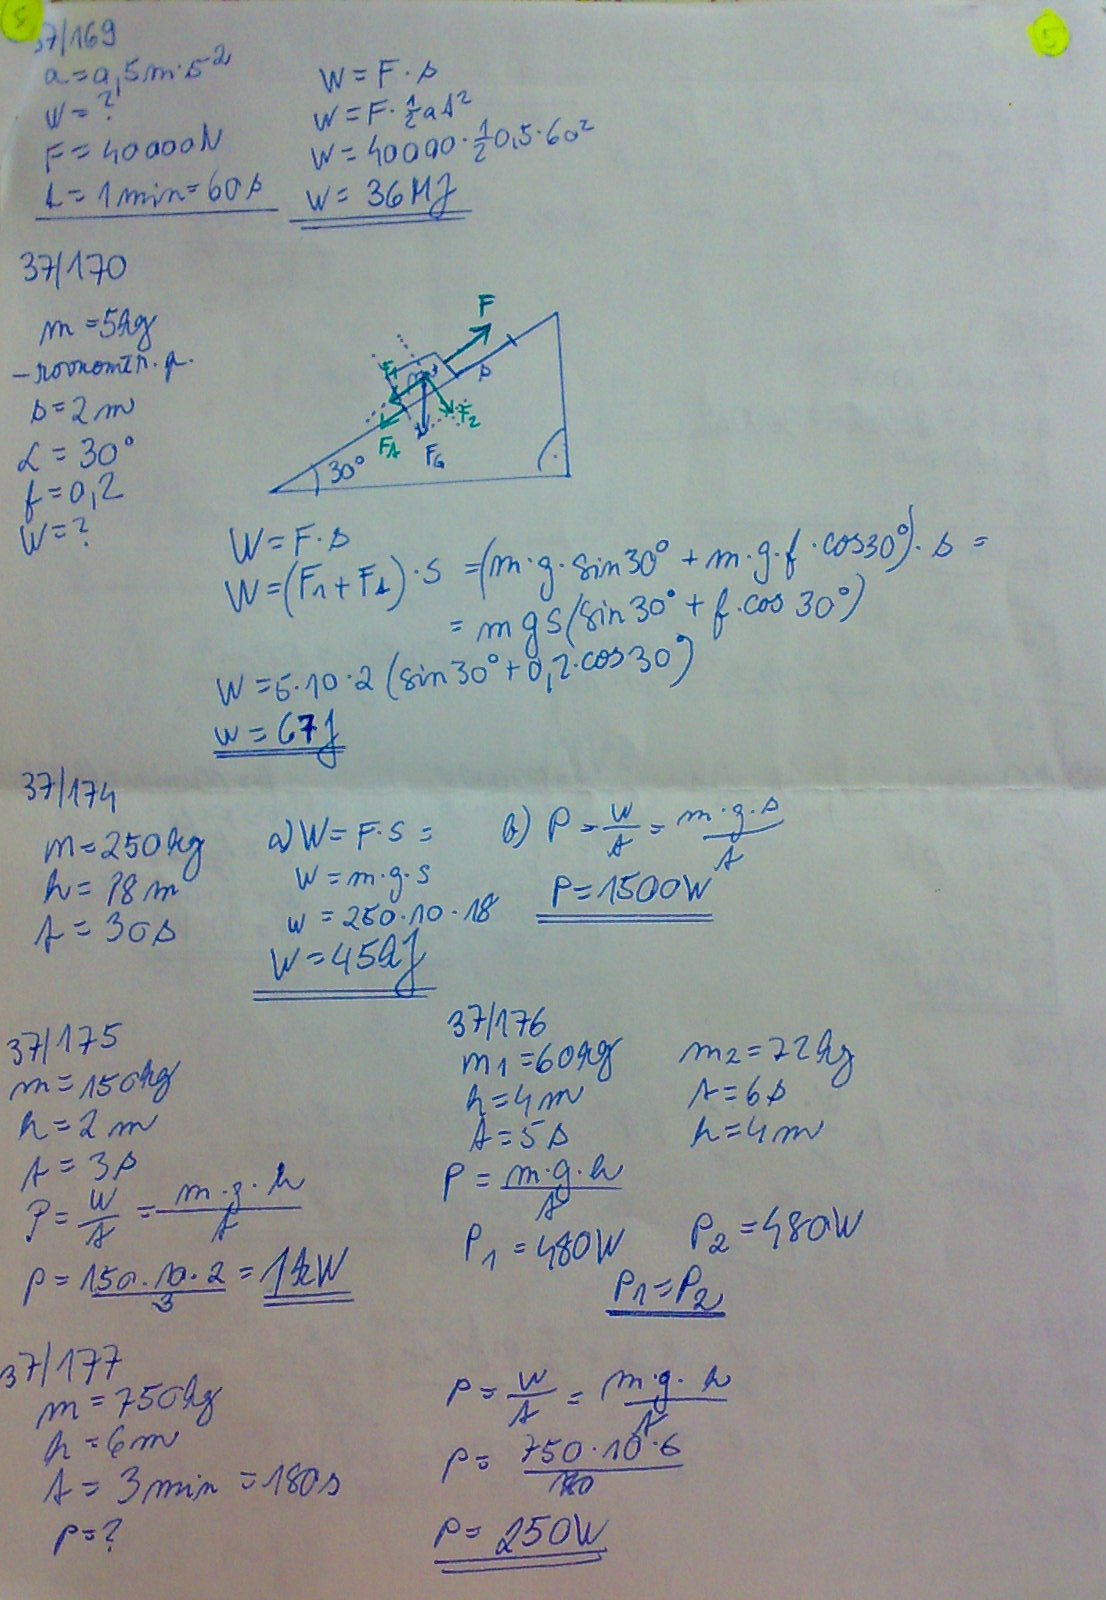 5
5
37/169
a = 0,5 m·s²
W = ?
F = 40000N
t = 1 min = 60s
W = F · s
W = F · 1/2 at²
W = 40000 · 1/2 0,5 · 60²
W = 36MJ
37/170
m = 5kg
- rovnoměr. p.
s = 2 m
α = 30°
f = 0,2
W = ?
F
F₁
m
s
F₂
Ft
FG
30°
W = F · s
W = (F₁ + Ft) · s = (m · g · sin30° + m · g · f · cos30°) · s =
= m g s (sin30° + f · cos 30°)
W = 5 · 10 · 2 (sin30° + 0,2 · cos30°)
W = 67J
37/174
m = 250kg
h = 18 m
t = 30s
a) W = F · S =
W = m · g · s
W = 250 · 10 · 18
W = 45kJ
b) P = W/t = m · g · s/t
P = 1500W
37/175
m = 150kg
h = 2 m
t = 3s
P = W/t = m · g · h/t
P = 150 · 10 · 2/3 = 1kW
37/176
m₁ = 60kg
h = 4 m
t = 5s
m₂ = 72kg
t = 6s
h = 4 m
P = m · g · h/t
P₁ = 480W
P₂ = 480W
P₁ = P₂
37/177
m = 750kg
h = 6m
t = 3 min = 180s
P = ?
P = W/t = m · g · h/t
P = 750 · 10 · 6/180
P = 250W